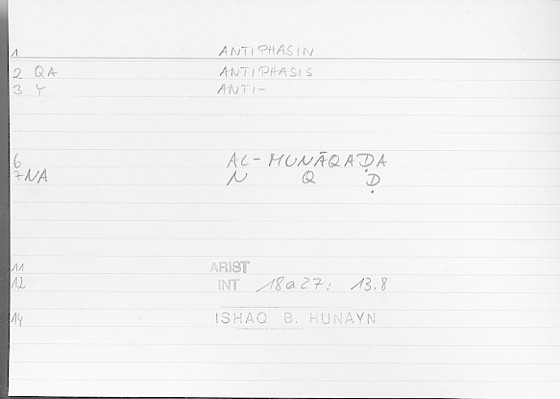 1 ANTIPHASIN
2 QA ANTIPHASIS
3 Y ANTI-
6 AL-MUNĀQAḌA
7 NA N Q Ḍ
11 ARIST
12 INT 18a27; 13.8
14 ISHAQ B. HUNAYN